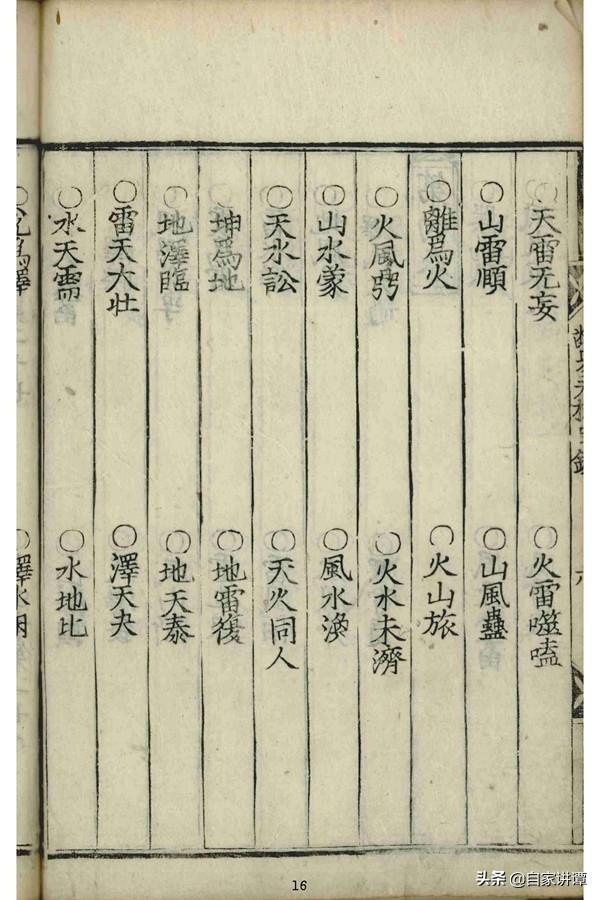 ○天雷无妄 ○火雷噬嗑
○山雷頤 ○山風蠱
○離爲火 ○火山旅
○火風鼎 ○火水未濟
○山水蒙 ○風水渙
○天水訟 ○天火同人
○坤爲地 ○地雷復
○地澤臨 ○地天泰
○雷天大壯 ○澤天夬
○水天需 ○水地比
16
头条 @自家讲谭